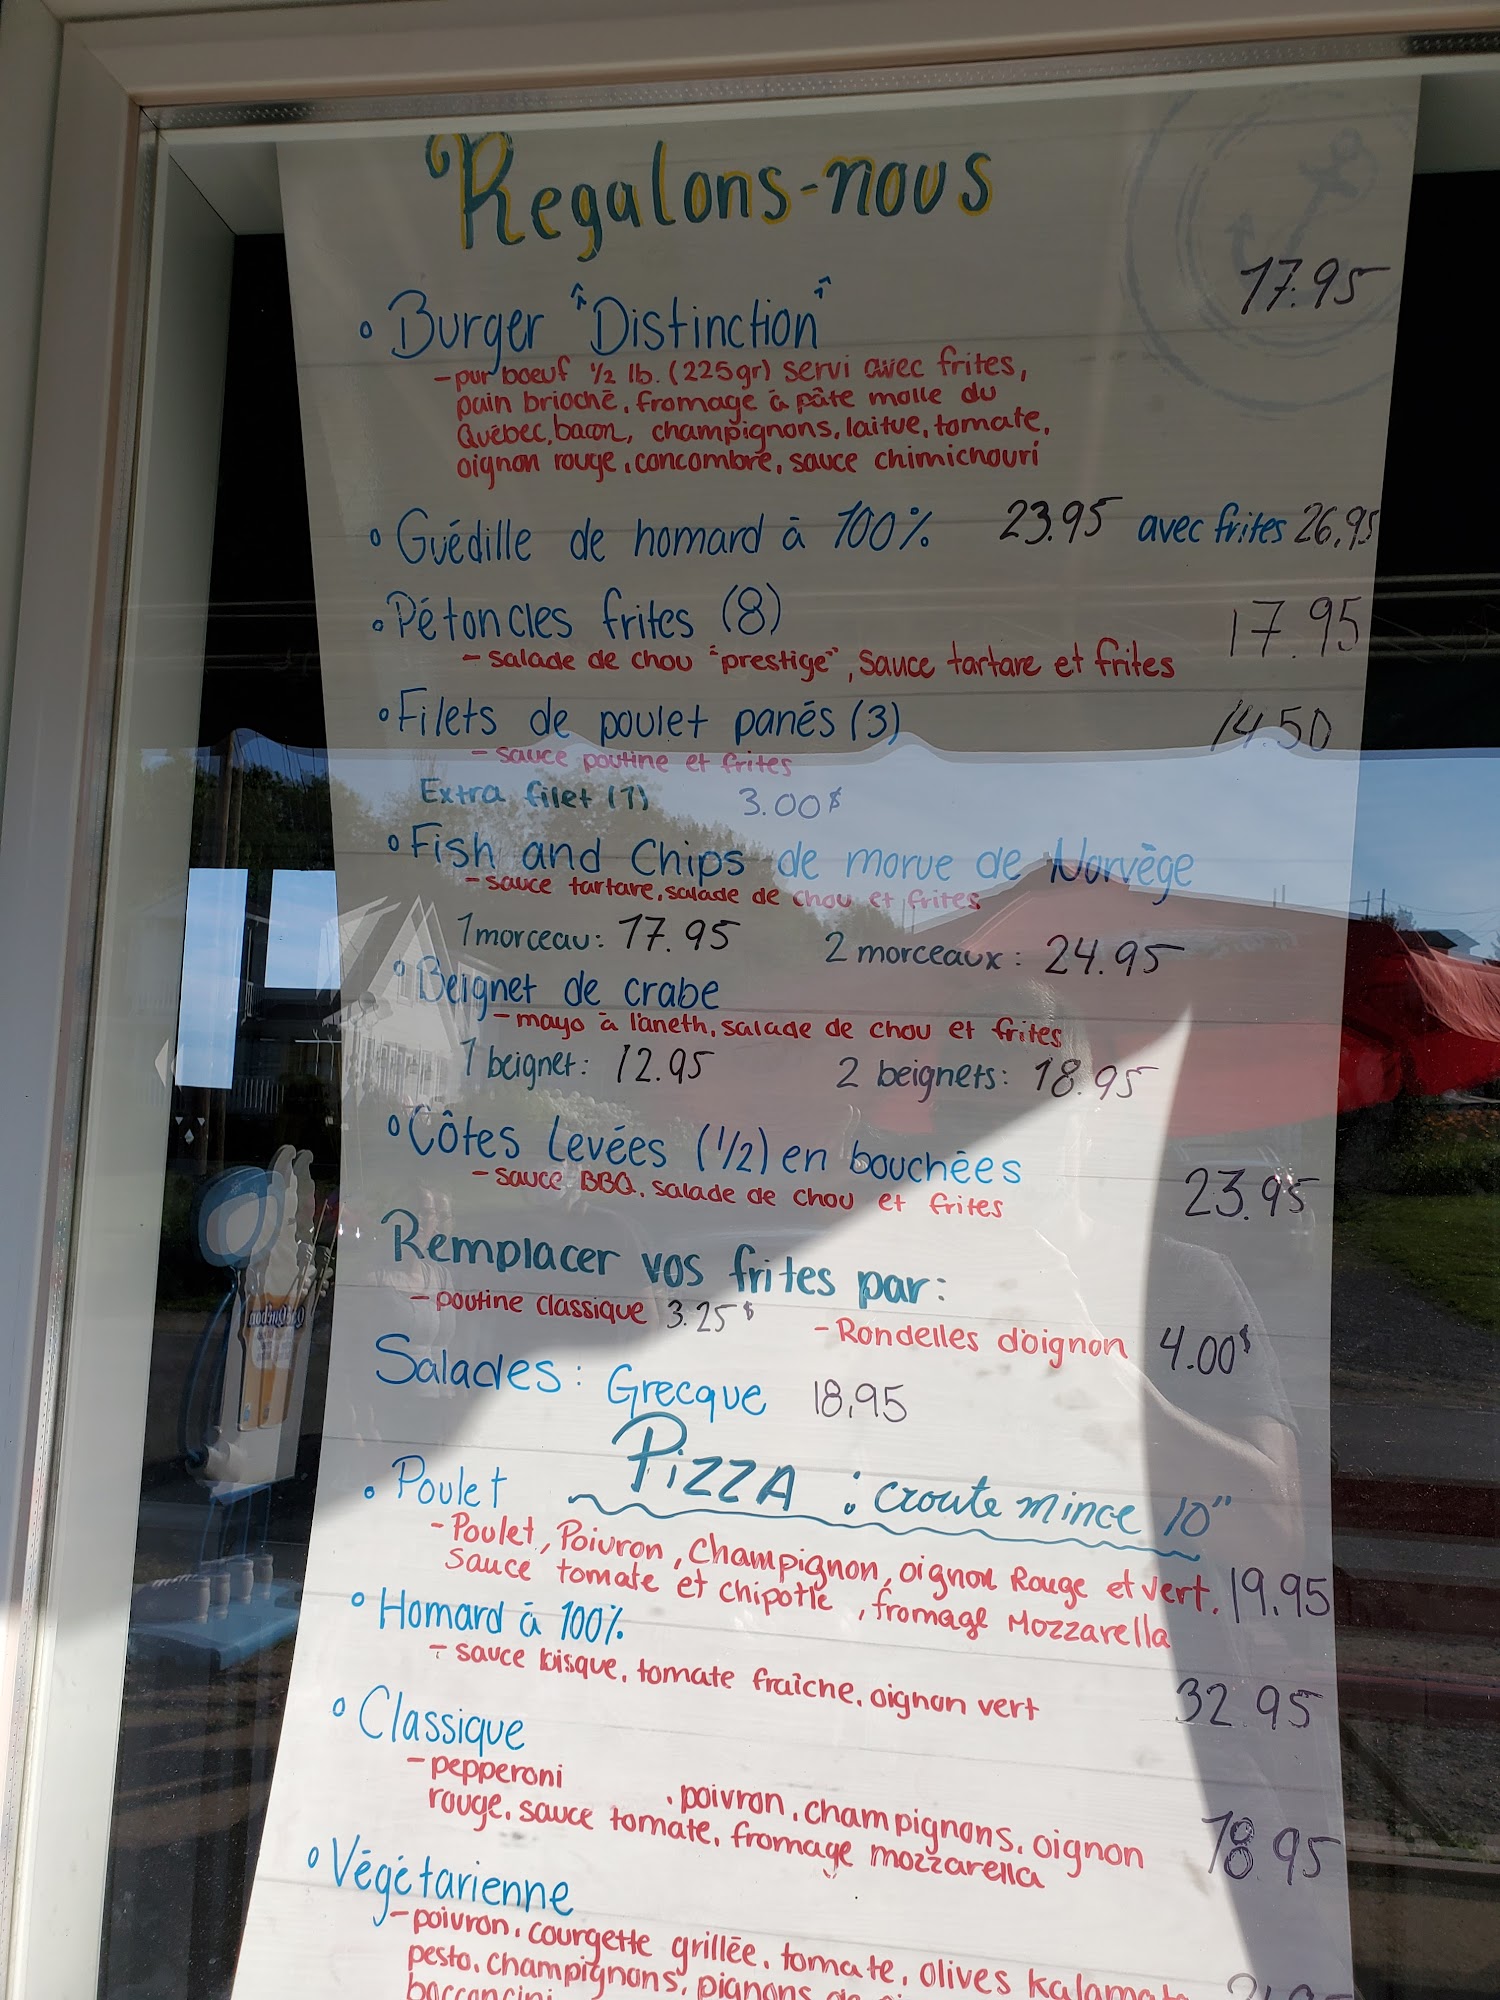 Regalons-nous
Burger "Distinction" 17.95
- pur boeuf 1/2 lb. (225gr) servi avec frites,
pain brioché, fromage à pâte molle du
Québec, bacon, champignons, laitue, tomate,
oignon rouge, concombre, sauce chimichouri
Guédille de homard à 100% 23.95 avec frites 26.95
Pétoncles frites (8) 17.95
- salade de chou "prestige", sauce tartare et frites
Filets de poulet panés (3) 14.50
- sauce poutine et frites
Extra filet (1) 3.00$
Fish and Chips de morue de Norvège
- sauce tartare, salade de chou et frites
1 morceau: 17.95 2 morceaux: 24.95
Beignet de crabe
- mayo à l'aneth, salade de chou et frites
1 beignet: 12.95 2 beignets: 18.95
Côtes Levées (1/2) en bouchées
- sauce BBQ, salade de chou et frites 23.95
Remplacer vos frites par:
- poutine classique 3.25$ - Rondelles d'oignon 4.00$
Salades: Grecque 18,95
Pizza : croute mince 10"
Poulet
- Poulet, Poivron, Champignon, oignon Rouge et vert, 19.95
sauce tomate et chipotle, fromage Mozzarella
Homard à 100%
- sauce bisque, tomate fraîche, oignon vert 32.95
Classique
- pepperoni , poivron, champignons, oignon 18.95
rouge, sauce tomate, fromage mozzarella
Végétarienne
- poivron, courgette grillée, tomate, olives
pesto, champignons, pignons